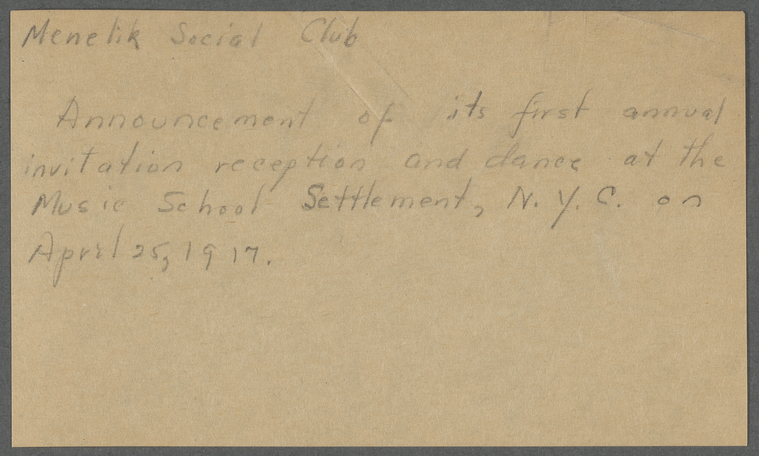 Menelik Social Club
Announcement of its first annual
invitation reception and dance at the
Music School Settlement, N. Y. C. on
April 25, 1917.